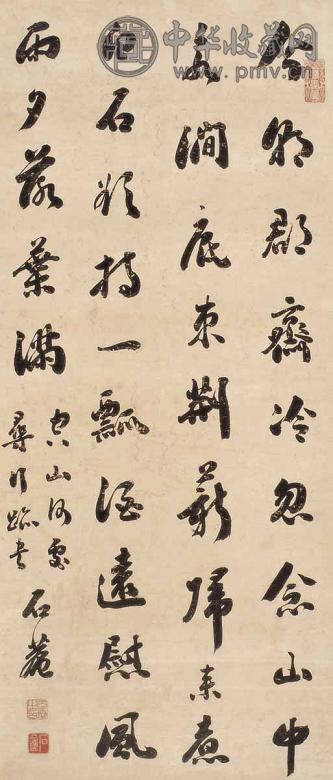 中华收藏网
www.pmv.cn
今朝郡齋冷忽念山中
客澗底束荊薪歸來煮
白石欲持一瓢酒遠慰風
雨夕落葉滿
空山何處
尋行跡書
石菴